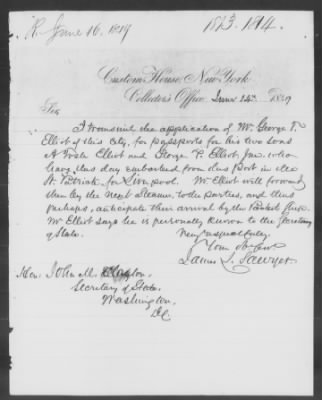 R June 16. 1849
1813. 1814.
Custom House, New York
Collector's Office, June 14th 1849
Sir
I transmit the application of Mr. George T.
Elliot of this city, for passports for his two sons
A Foster Elliot and George T. Elliot Jun. who
have this day embarked from this Port in the
St. Patrick, for Liverpool. Mr. Elliot will forward
them by the next Steamer to the parties, and thus
perhaps, anticipate their arrival by the Packet Ship.
Mr Elliot says he is personally known to the Secretary
of State.
Very respectfully
Your Ob Servt
James L. Sawyer
Hon. John M. Clayton
Secretary of State
Washington
D.C.